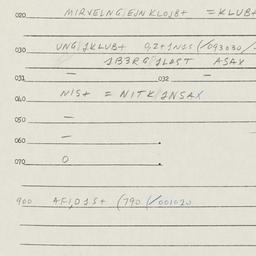 020 MIRVELNG/EJNKLOJB+ =KLUB+
030 UNG/JKLUB+ 0,2+1N1S (/093030/
JB3RG/JLAST ASAX
031 — 032 —
040 NIS+ = NITK/JNSAX
050 —
060 —
070 0
900 AFI,01S+ (790 /001020